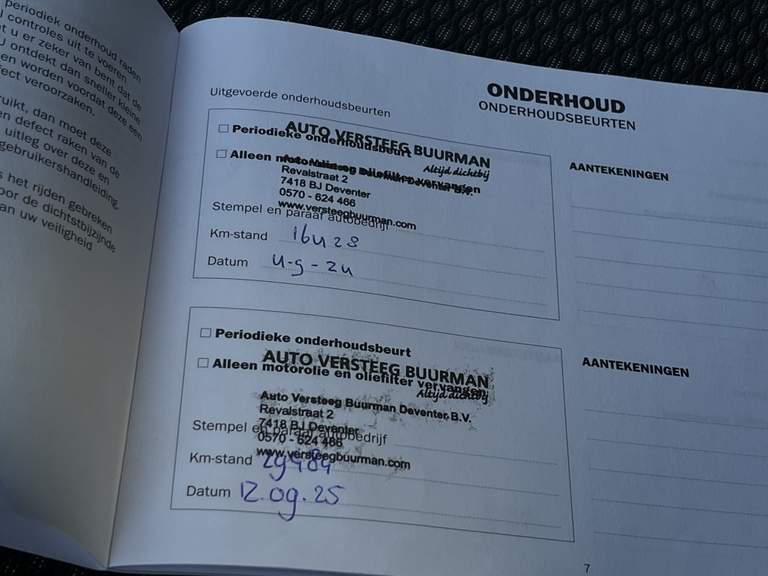 periodiek onderhoud raden
controles uit te voeren
t u er zeker van bent dat de
U ontdekt dan sneller kleine
en worden voordat deze een
fect veroorzaken.
ruikt, dan moet deze
en defect raken van de
uitleg over deze en
gebruikershandleiding.
s het rijden gebreken
oor de dichtstbijzijnde
an uw veiligheid
ONDERHOUD
ONDERHOUDSBEURTEN
Uitgevoerde onderhoudsbeurten
Periodieke onderhoudsbeurt
AUTO VERSTEEG BUURMAN
Altijd dichtbij
Alleen motorolie en oliefilter vervangen
Revalstraat 2
7418 BJ Deventer
0570 - 624 466
www.versteegbuurman.com
Stempel en paraaf autobedrijf
Km-stand 16428
Datum 4-9-24
AANTEKENINGEN
Periodieke onderhoudsbeurt
AUTO VERSTEEG BUURMAN
Altijd dichtbij
Alleen motorolie en oliefilter vervangen
Auto Versteeg Buurman Deventer B.V.
Revalstraat 2
7418 BJ Deventer
0570 - 624 466
www.versteegbuurman.com
Stempel en paraaf autobedrijf
Km-stand 29484
Datum 12.09.25
AANTEKENINGEN
7